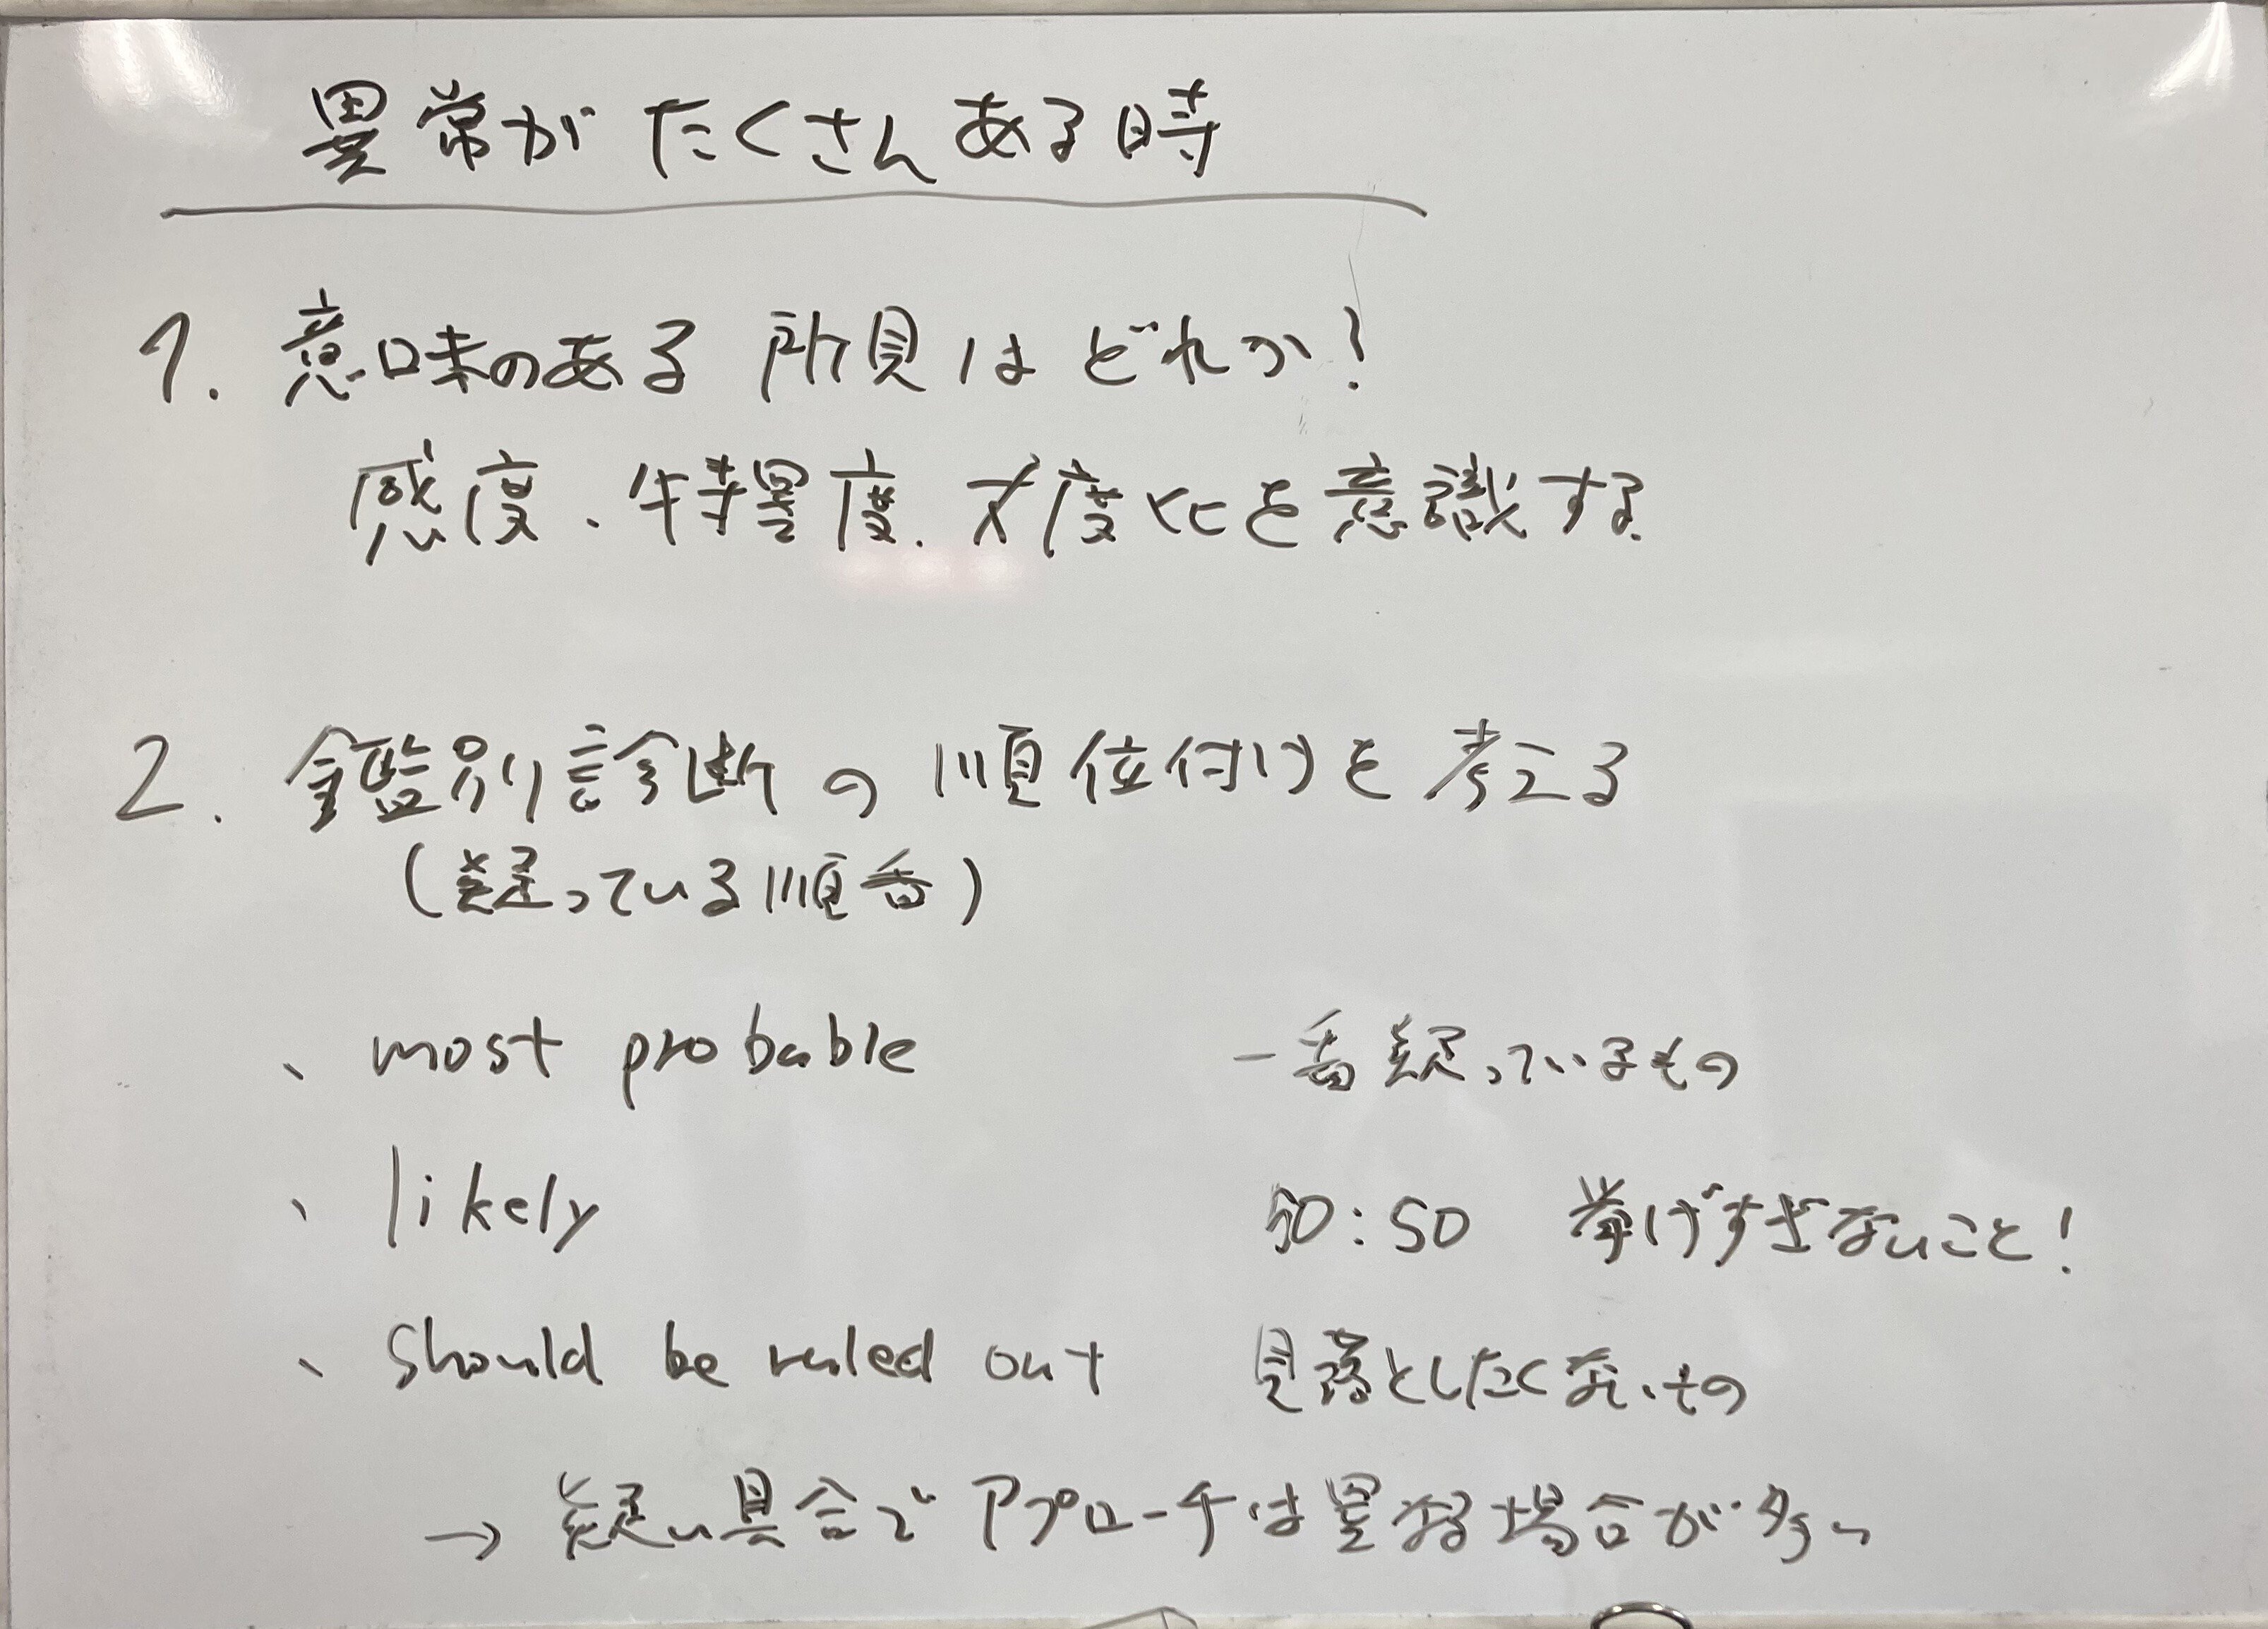 異常がたくさんある時
1. 意味のある所見はどれか!
感度、特異度、尤度比を意識する
2. 鑑別診断の順位付けを考える
(疑っている順番)
、most probable 一番疑っているもの
、likely 50:50 挙げすぎないこと!
、should be ruled out 見落としたくないもの
→ 疑い具合でアプローチは異なる場合が多い